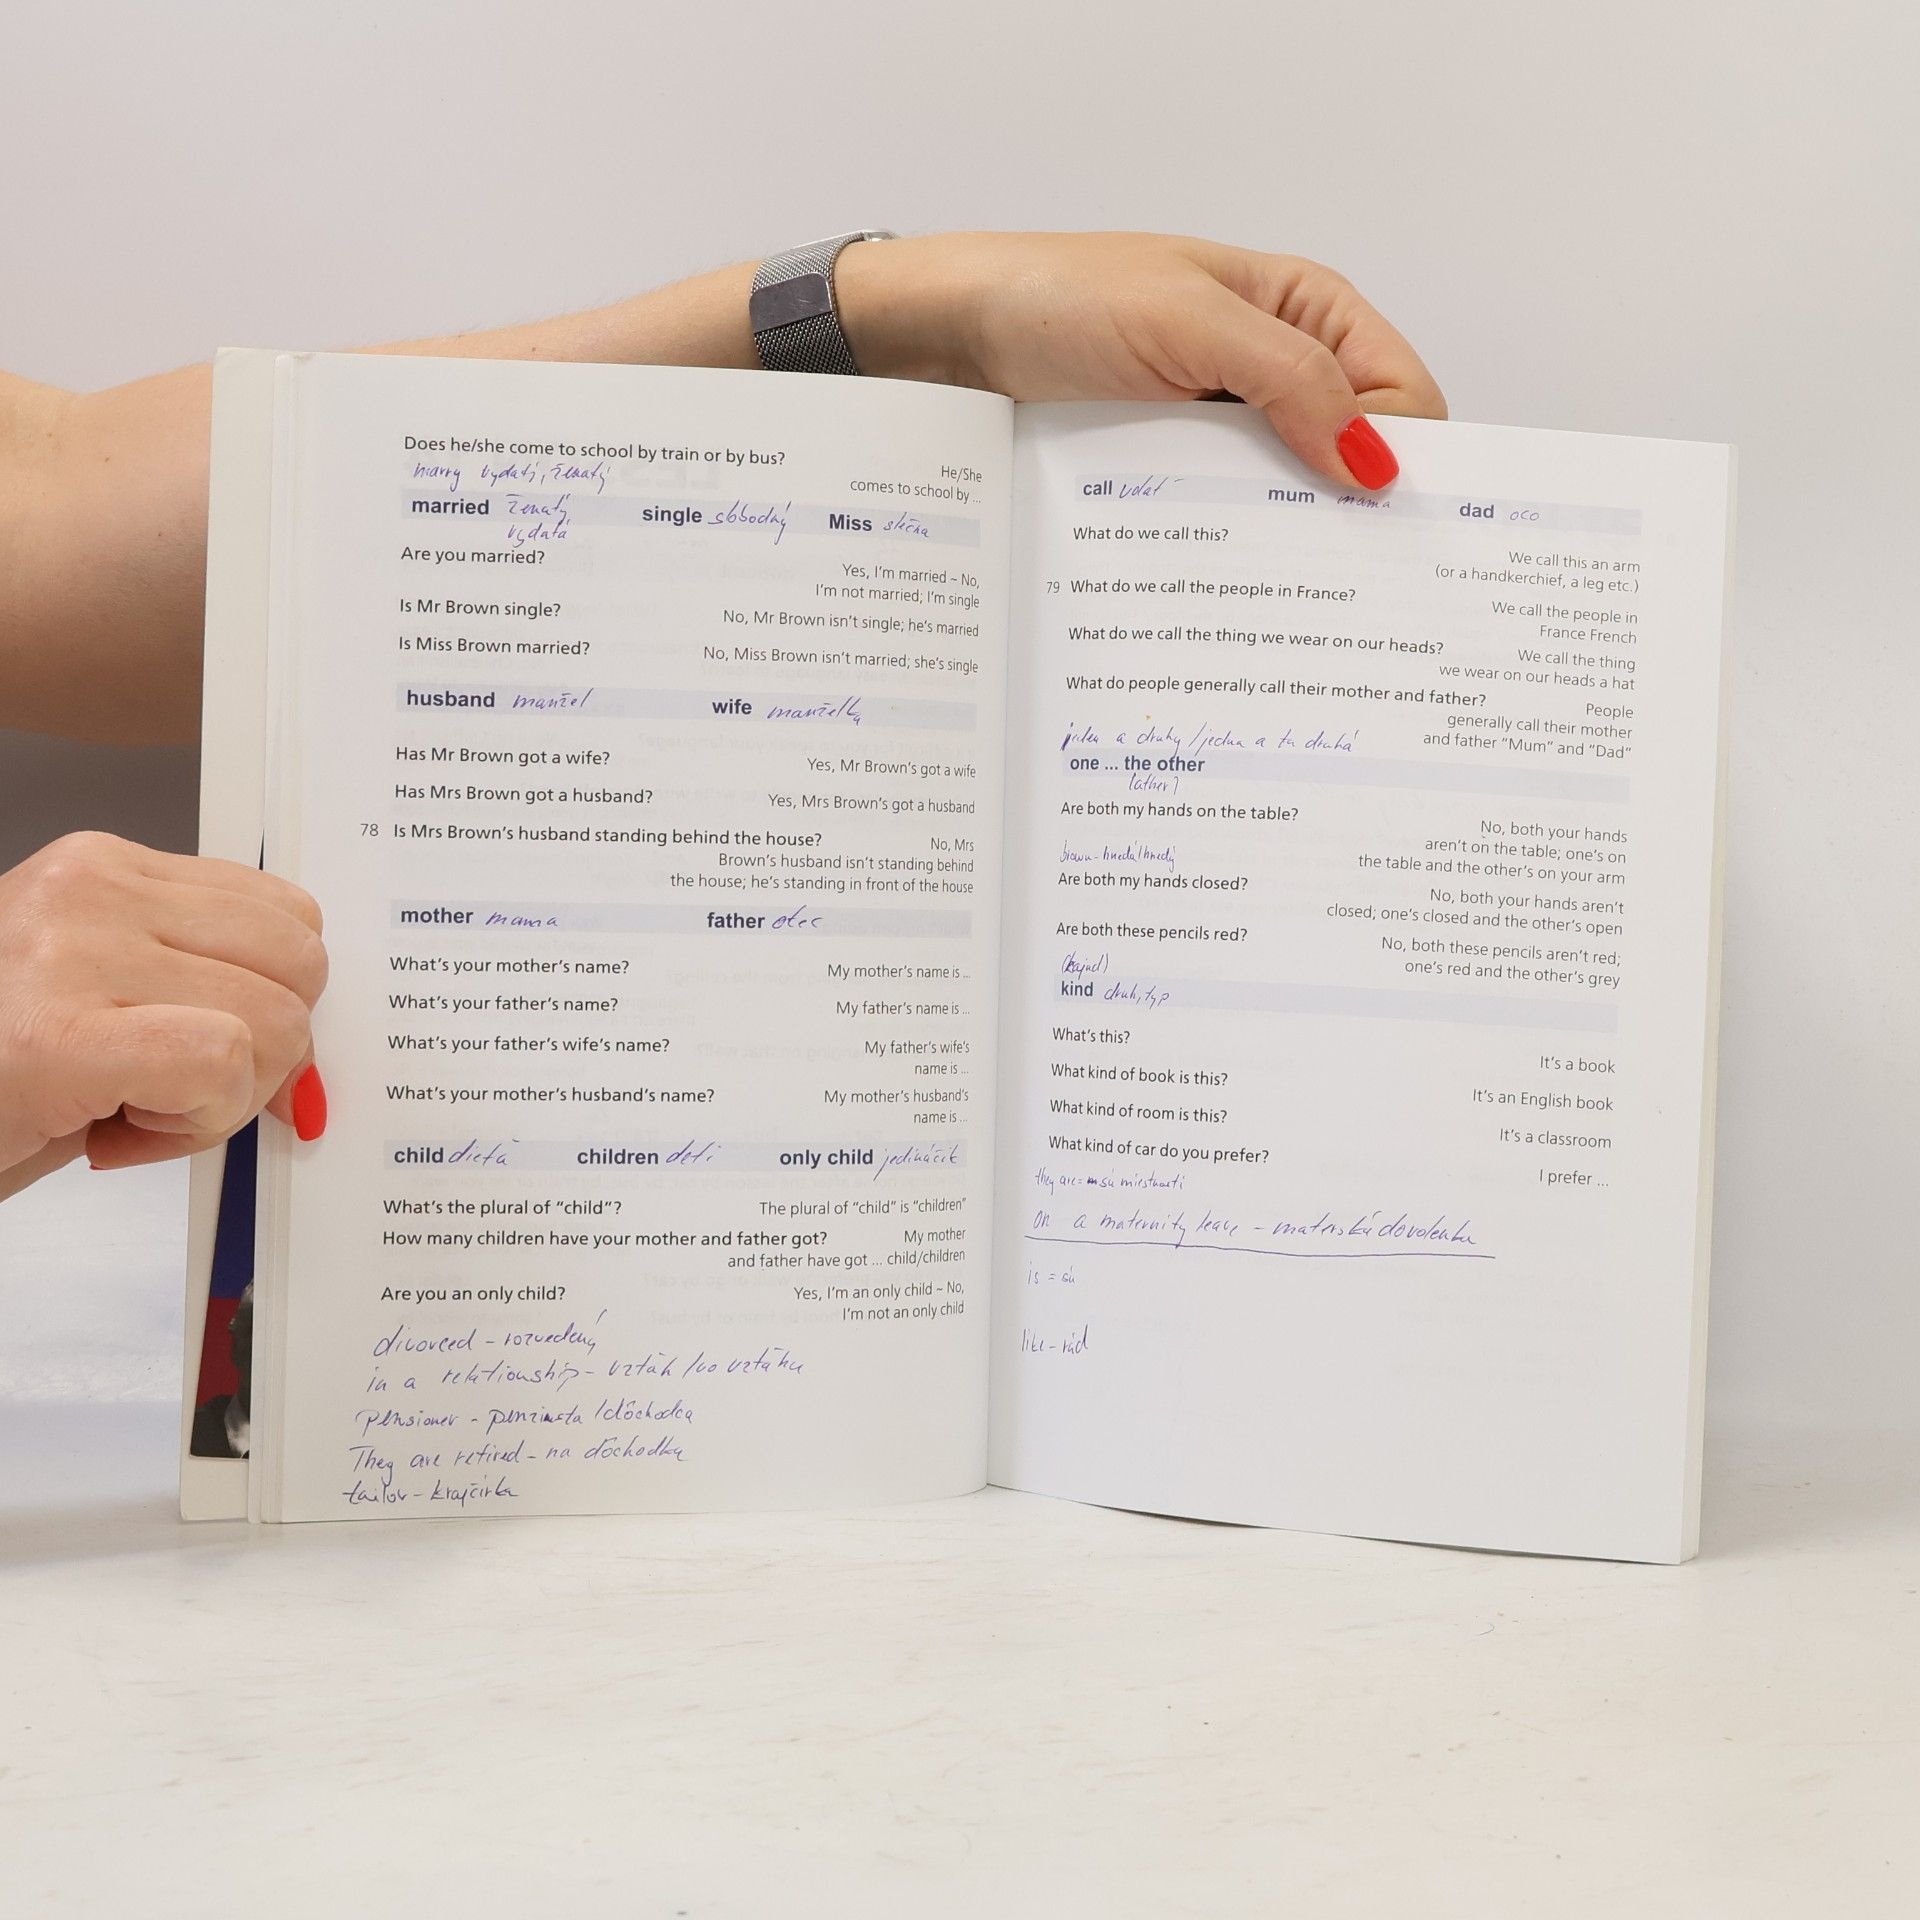 Does he/she come to school by train or by bus?
He/She
comes to school by ...
marry vydatý, ženatý
married ženatý single slobodný Miss slečna
vydatá
Are you married?
Yes, I'm married ~ No,
I'm not married; I'm single
Is Mr Brown single?
No, Mr Brown isn't single; he's married
Is Miss Brown married?
No, Miss Brown isn't married; she's single
husband manžel wife manželka
Has Mr Brown got a wife?
Yes, Mr Brown's got a wife
Has Mrs Brown got a husband?
Yes, Mrs Brown's got a husband
78 Is Mrs Brown's husband standing behind the house?
No, Mrs
Brown's husband isn't standing behind
the house; he's standing in front of the house
mother mama father otec
What's your mother's name?
My mother's name is ...
What's your father's name?
My father's name is ...
What's your father's wife's name?
My father's wife's
name is ...
What's your mother's husband's name?
My mother's husband's
name is ...
child dieťa children deti only child jedináčik
What's the plural of "child"?
The plural of "child" is "children"
How many children have your mother and father got?
My mother
and father have got ... child/children
Are you an only child?
Yes, I'm an only child ~ No,
I'm not an only child
divorced - rozvedený
in a relationship - vzťah /vo vzťahu
pensioner - penzista /dôchodca
They are retired - na dôchodku
tailor - krajčírka
call volať mum mama dad oco
What do we call this?
We call this an arm
(or a handkerchief, a leg etc.)
79 What do we call the people in France?
We call the people in
France French
What do we call the thing we wear on our heads?
We call the thing
we wear on our heads a hat
What do people generally call their mother and father?
People
generally call their mother
and father "Mum" and "Dad"
jeden a druhý /jedna a tá druhá
one ... the other
Are both my hands on the table?
No, both your hands
aren't on the table; one's on
the table and the other's on your arm
brown - hnedá/hnedý
Are both my hands closed?
No, both your hands aren't
closed; one's closed and the other's open
Are both these pencils red?
No, both these pencils aren't red;
one's red and the other's grey
(kajnd)
kind druh, typ
What's this?
It's a book
What kind of book is this?
It's an English book
What kind of room is this?
It's a classroom
What kind of car do you prefer?
I prefer ...
they are = sú miestnosti
on a maternity leave - materská dovolenka
is = sú
like - rád